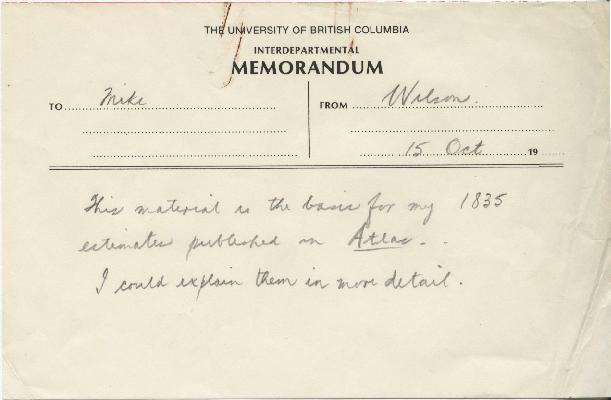 THE UNIVERSITY OF BRITISH COLUMBIA
INTERDEPARTMENTAL
MEMORANDUM
TO Mike FROM Wilson.
15 Oct 19
This material is the basis for my 1835
estimates published in Atlas.
I could explain them in more detail.